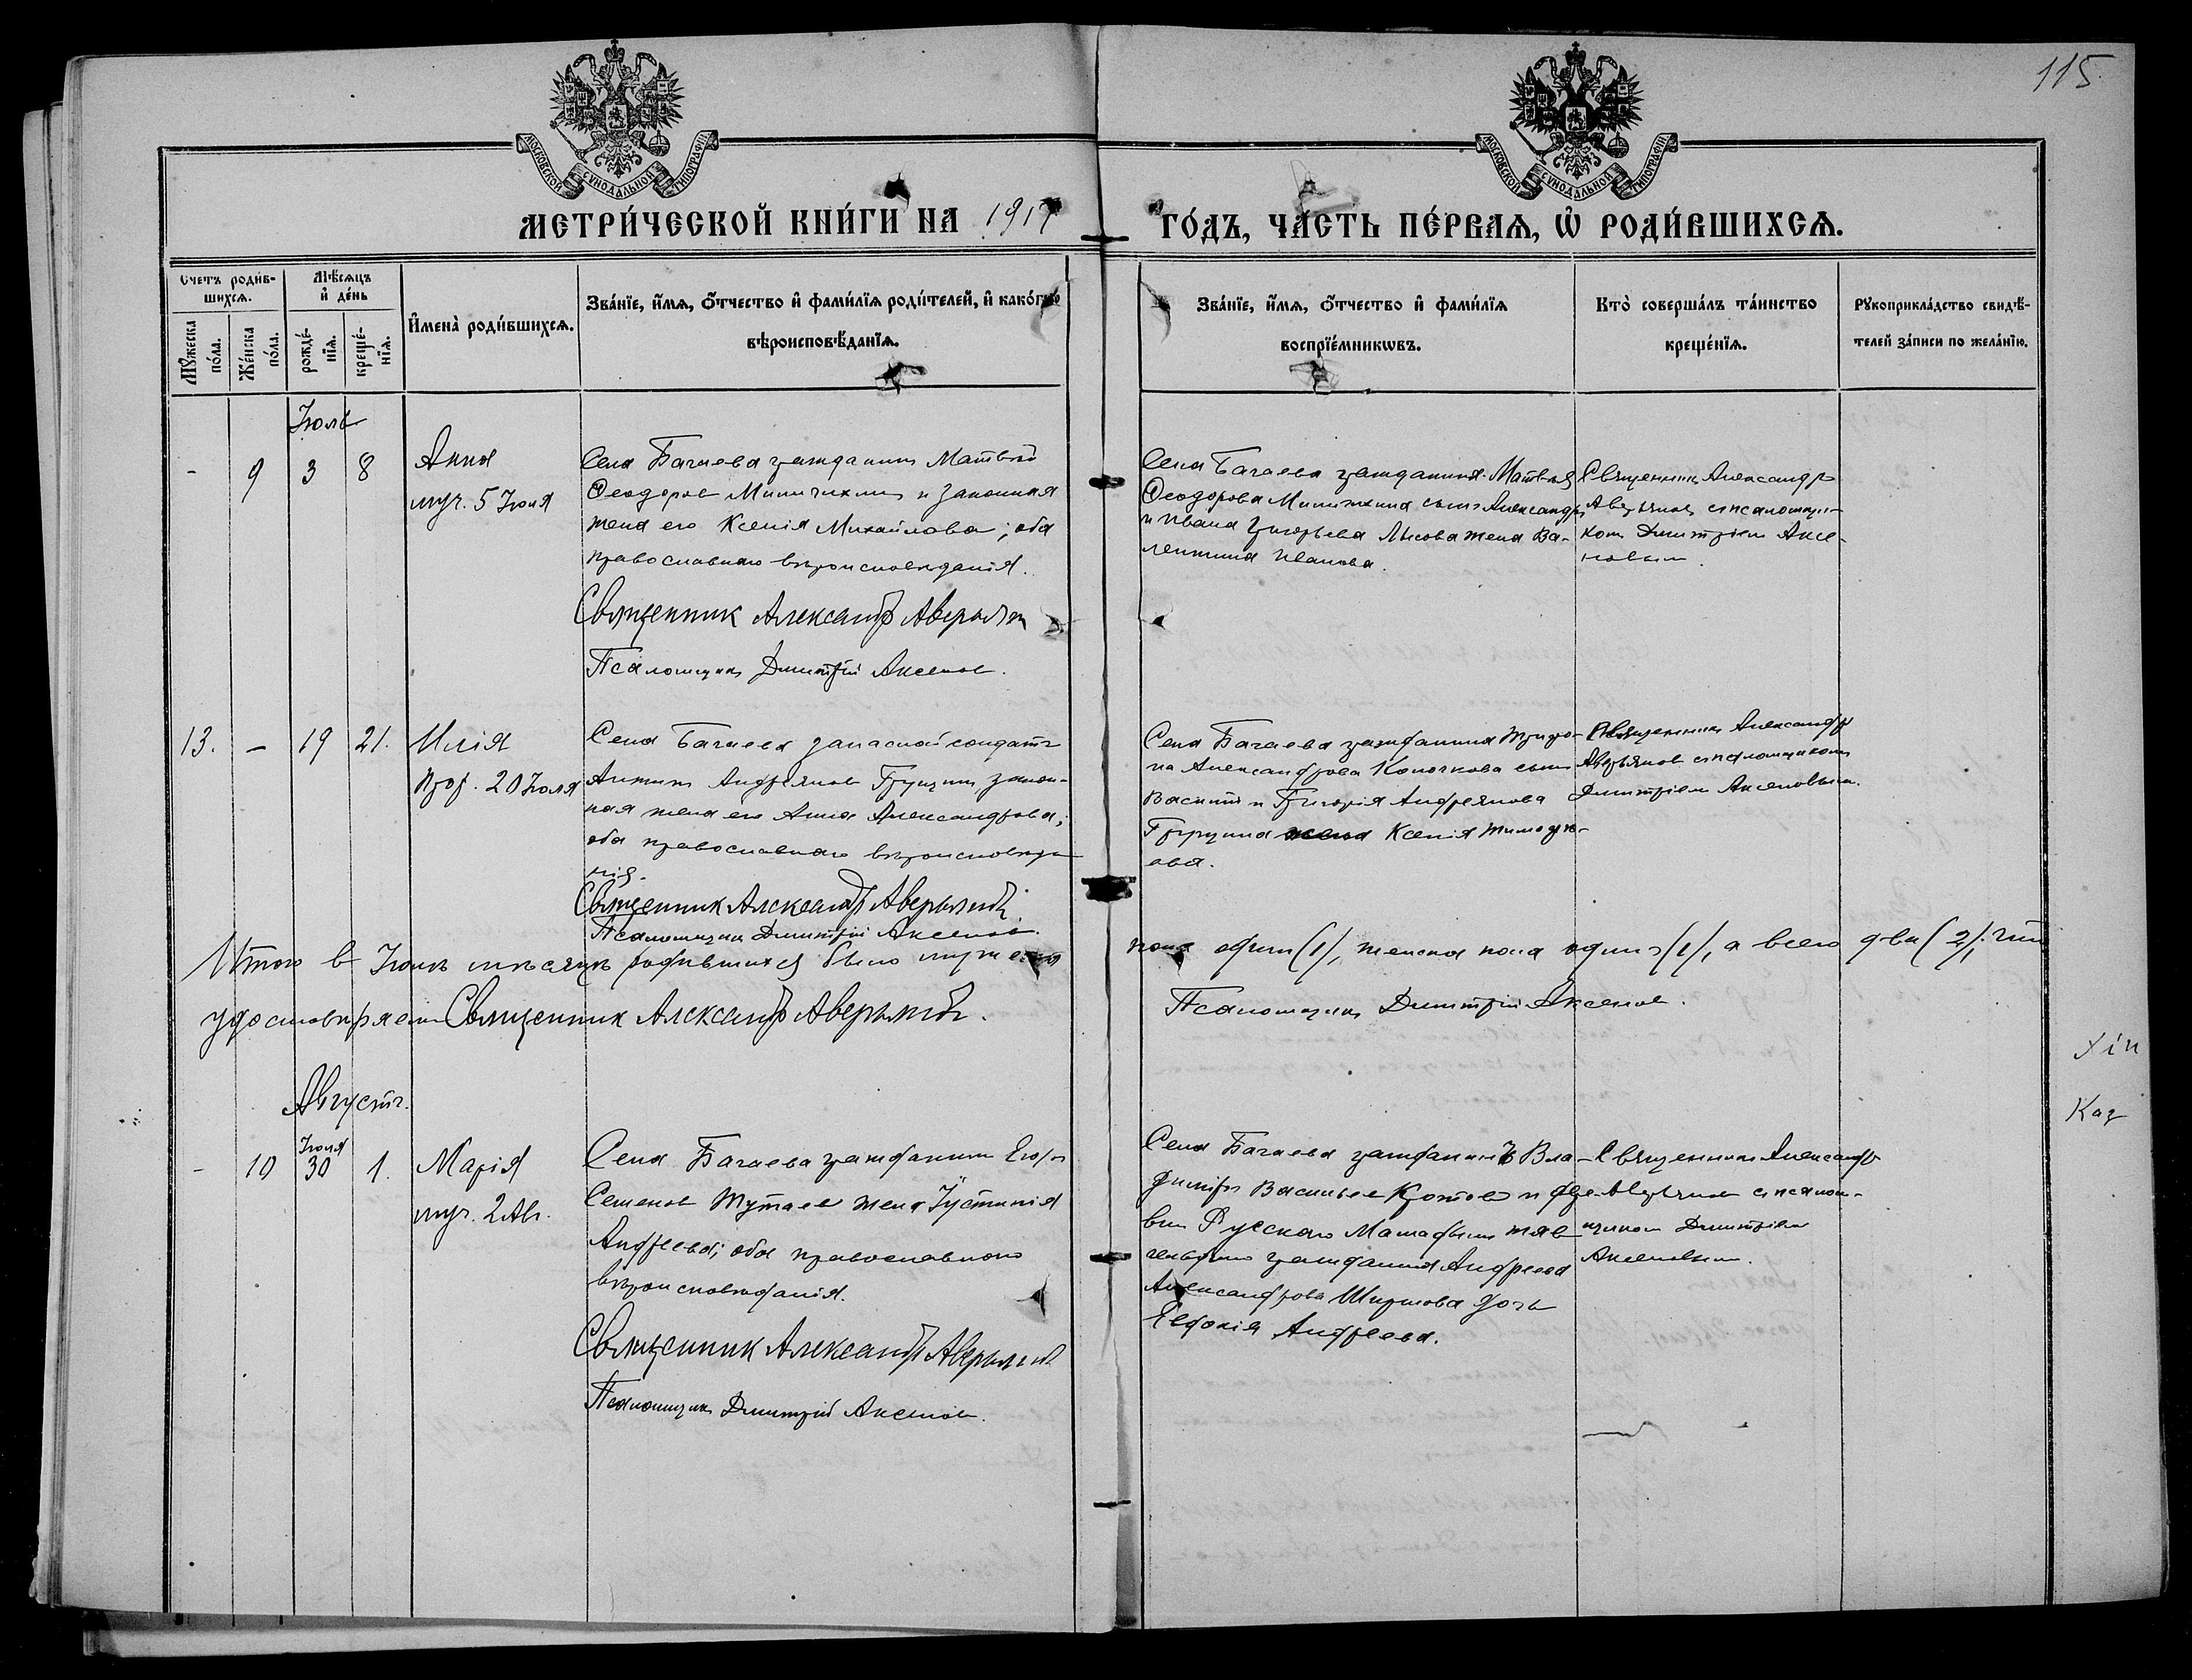 115
МОСКОВСКОЙ СѴНОДАЛЬНОЙ ТИПОГРАФІИ.
МОСКОВСКОЙ СѴНОДАЛЬНОЙ ТИПОГРАФІИ.
МЕТРИ́ЧЕСКОЙ КНИ́ГИ НА 1917 ГО́ДЪ, ЧА́СТЬ ПЕ́РВАѦ, Ѽ РОДИ́ВШИХСѦ.
Счетъ роди́в-
шихсѧ.
Мѹ́жеска
по́ла.
Же́нска
по́ла.
Мѣ́сѧцъ
и҆ де́нь
рожде́-
нїѧ.
креще́-
нїѧ.
И҆мена̀ роди́вшихсѧ.
Зва́нїе, и҆́мѧ, ѻ҆́тчество и҆ фами́лїѧ роди́телей, и҆ како́гѡ
вѣроисповѣ́данїѧ.
Зва́нїе, и҆́мѧ, ѻ҆́тчество и҆ фами́лїѧ
воспрїе́мникѡвъ.
Кто̀ соверша́лъ та́инство
креще́нїѧ.
Рѹкоприкла́дство свидѣ́-
телей за́писи по жела́нїю.
Іюль
- 9 3 8
Анна
муч. 5 Іюля
Села Бачаева гражданинъ Матвѣй
Ѳеодоровъ и законная
жена его Ксенія Михайлова; оба
православнаго вѣроисповѣданія.
Священник Александр Аверьянов
Псаломщикъ Димитрій Аксенов.
Села Бачаева гражданина Матвѣя
Ѳеодорова сынъ Александръ
и Ивана Григорьева Лысова жена Ва-
лентина Иванова.
Священникъ Александръ
Аверьянов с псаломщи-
ком Димитріем Аксе-
новым.
13. - 19 21.
Илія
прор. 20 Іюля
Села Бачаева запасной солдатъ
Антип Андреянов законн-
ная жена его Анна Александрова;
оба православнаго вѣроисповѣда-
нія.
Священник Александр Аверьянов.
Псаломщикъ Димитрій Аксенов.
Села Бачаева гражданина Трифо-
на Александрова Колочкова сын
Василій и Григорія Андреянова
жена Ксенія Тимофе-
ева.
Священникъ Александръ
Аверьянов с псаломщиком
Димитріем Аксеновым.
Итого в Іюлѣ мѣсяцѣ родившихся было мужеска пола один (1), женска пола один (1), а всего два (2). Что
удостовѣряем Священник Александр Аверьянов. Псаломщикъ Димитрій Аксенов.
Августъ.
- 10 Іюля 30 1.
Марія
муч. 2 Авг.
Села Бачаева гражданин Егоръ
Семенов Тутаев жена Іустинія
Андреева; оба православнаго
вѣроисповѣданія.
Священник Александр Аверьянов
Псаломщикъ Димитрій Аксенов.
Села Бачаева гражданинъ Вла-
димір Васильев Кротов и
Русскаго
гражданина Андреева
Александрова дочь
Евдокія Андреева.
Священникъ Александръ
Аверьянов с псалом-
щиком Димитріем
Аксеновым.